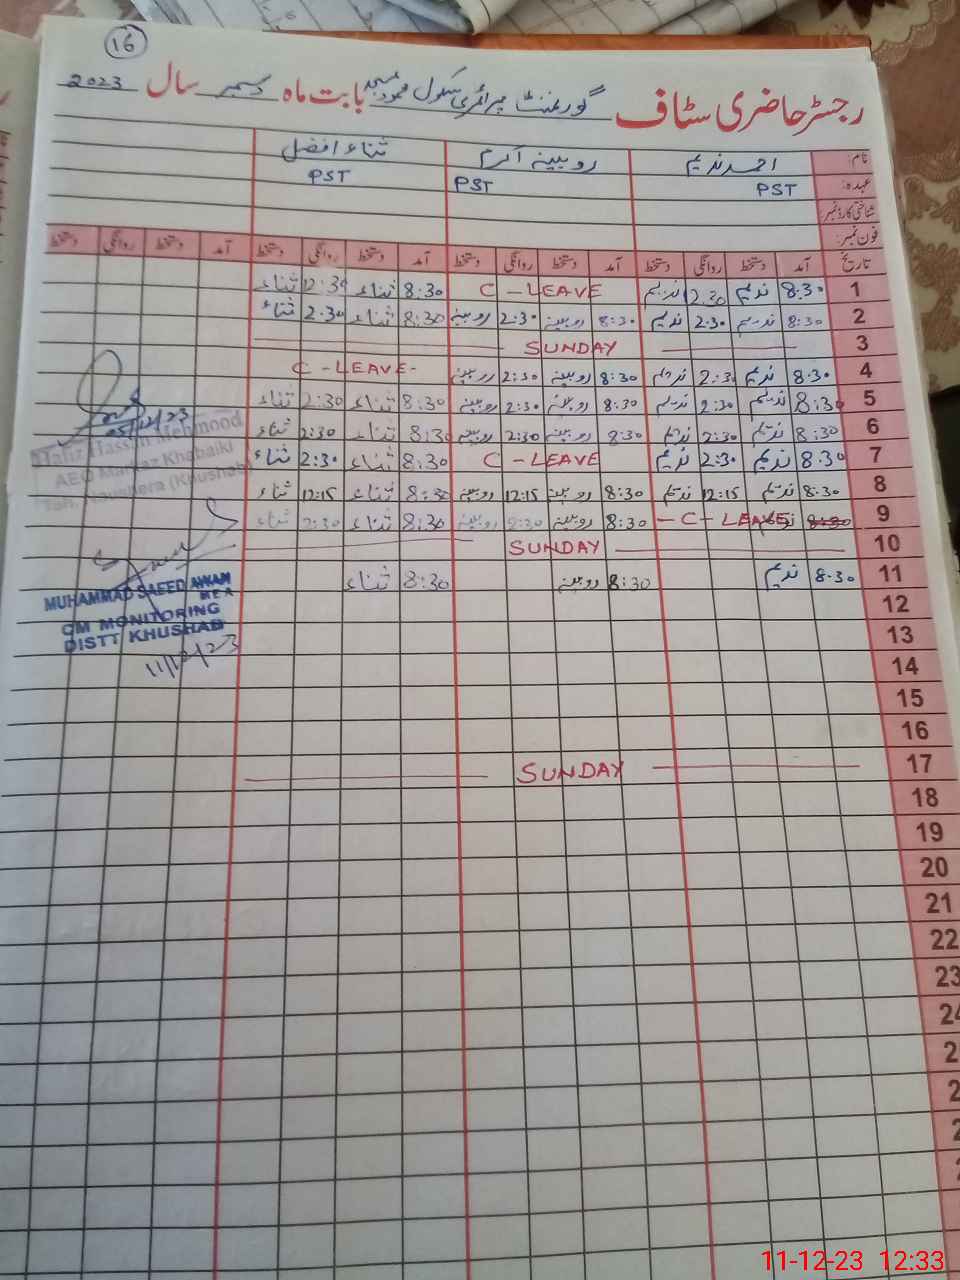 16
رجسٹر حاضری سٹاف گورنمنٹ پرائمری سکول محمود مسجد بابت ماہ دسمبر سال 2023
نام: احمد ندیم روبینہ اکرم ثناء افضل
عہدہ: PST PST PST
شناختی کارڈ نمبر:
فون نمبر:
تاریخ آمد دستخط روانگی دستخط آمد دستخط روانگی دستخط آمد دستخط روانگی دستخط آمد دستخط روانگی دستخط
1 8:30 ندیم 12:30 ندیم C - LEAVE 8:30 ثناء 12:30 ثناء
2 8:30 ندیم 2:30 ندیم 8:30 روبینہ 2:30 روبینہ 8:30 ثناء 2:30 ثناء
3 SUNDAY
4 8:30 ندیم 2:30 ندیم 8:30 روبینہ 2:30 روبینہ C - LEAVE -
5 8:30 ندیم 2:30 ندیم 8:30 روبینہ 2:30 روبینہ 8:30 ثناء 2:30 ثناء
6 8:30 ندیم 2:30 ندیم 8:30 روبینہ 2:30 روبینہ 8:30 ثناء 2:30 ثناء
7 8:30 ندیم 2:30 ندیم C - LEAVE 8:30 ثناء 2:30 ثناء
8 8:30 ندیم 12:15 ندیم 8:30 روبینہ 12:15 روبینہ 8:30 ثناء 12:15 ثناء
9 8:30 ندیم - C - LEAVE 8:30 روبینہ 2:30 روبینہ 8:30 ثناء 2:30 ثناء
10 SUNDAY
11 8:30 ندیم 8:30 روبینہ 8:30 ثناء
12
13
14
15
16
17 SUNDAY
18
19
20
21
22
23
05/12/23
Hafiz Hassan Mehmood
AEO Markaz Khabaiki
Teh. Naushera (Khushab)
MUHAMMAD SAEED AWAN
MEA
CM MONITORING
DISTT KHUSHAB
11/12/23
11-12-23 12:33